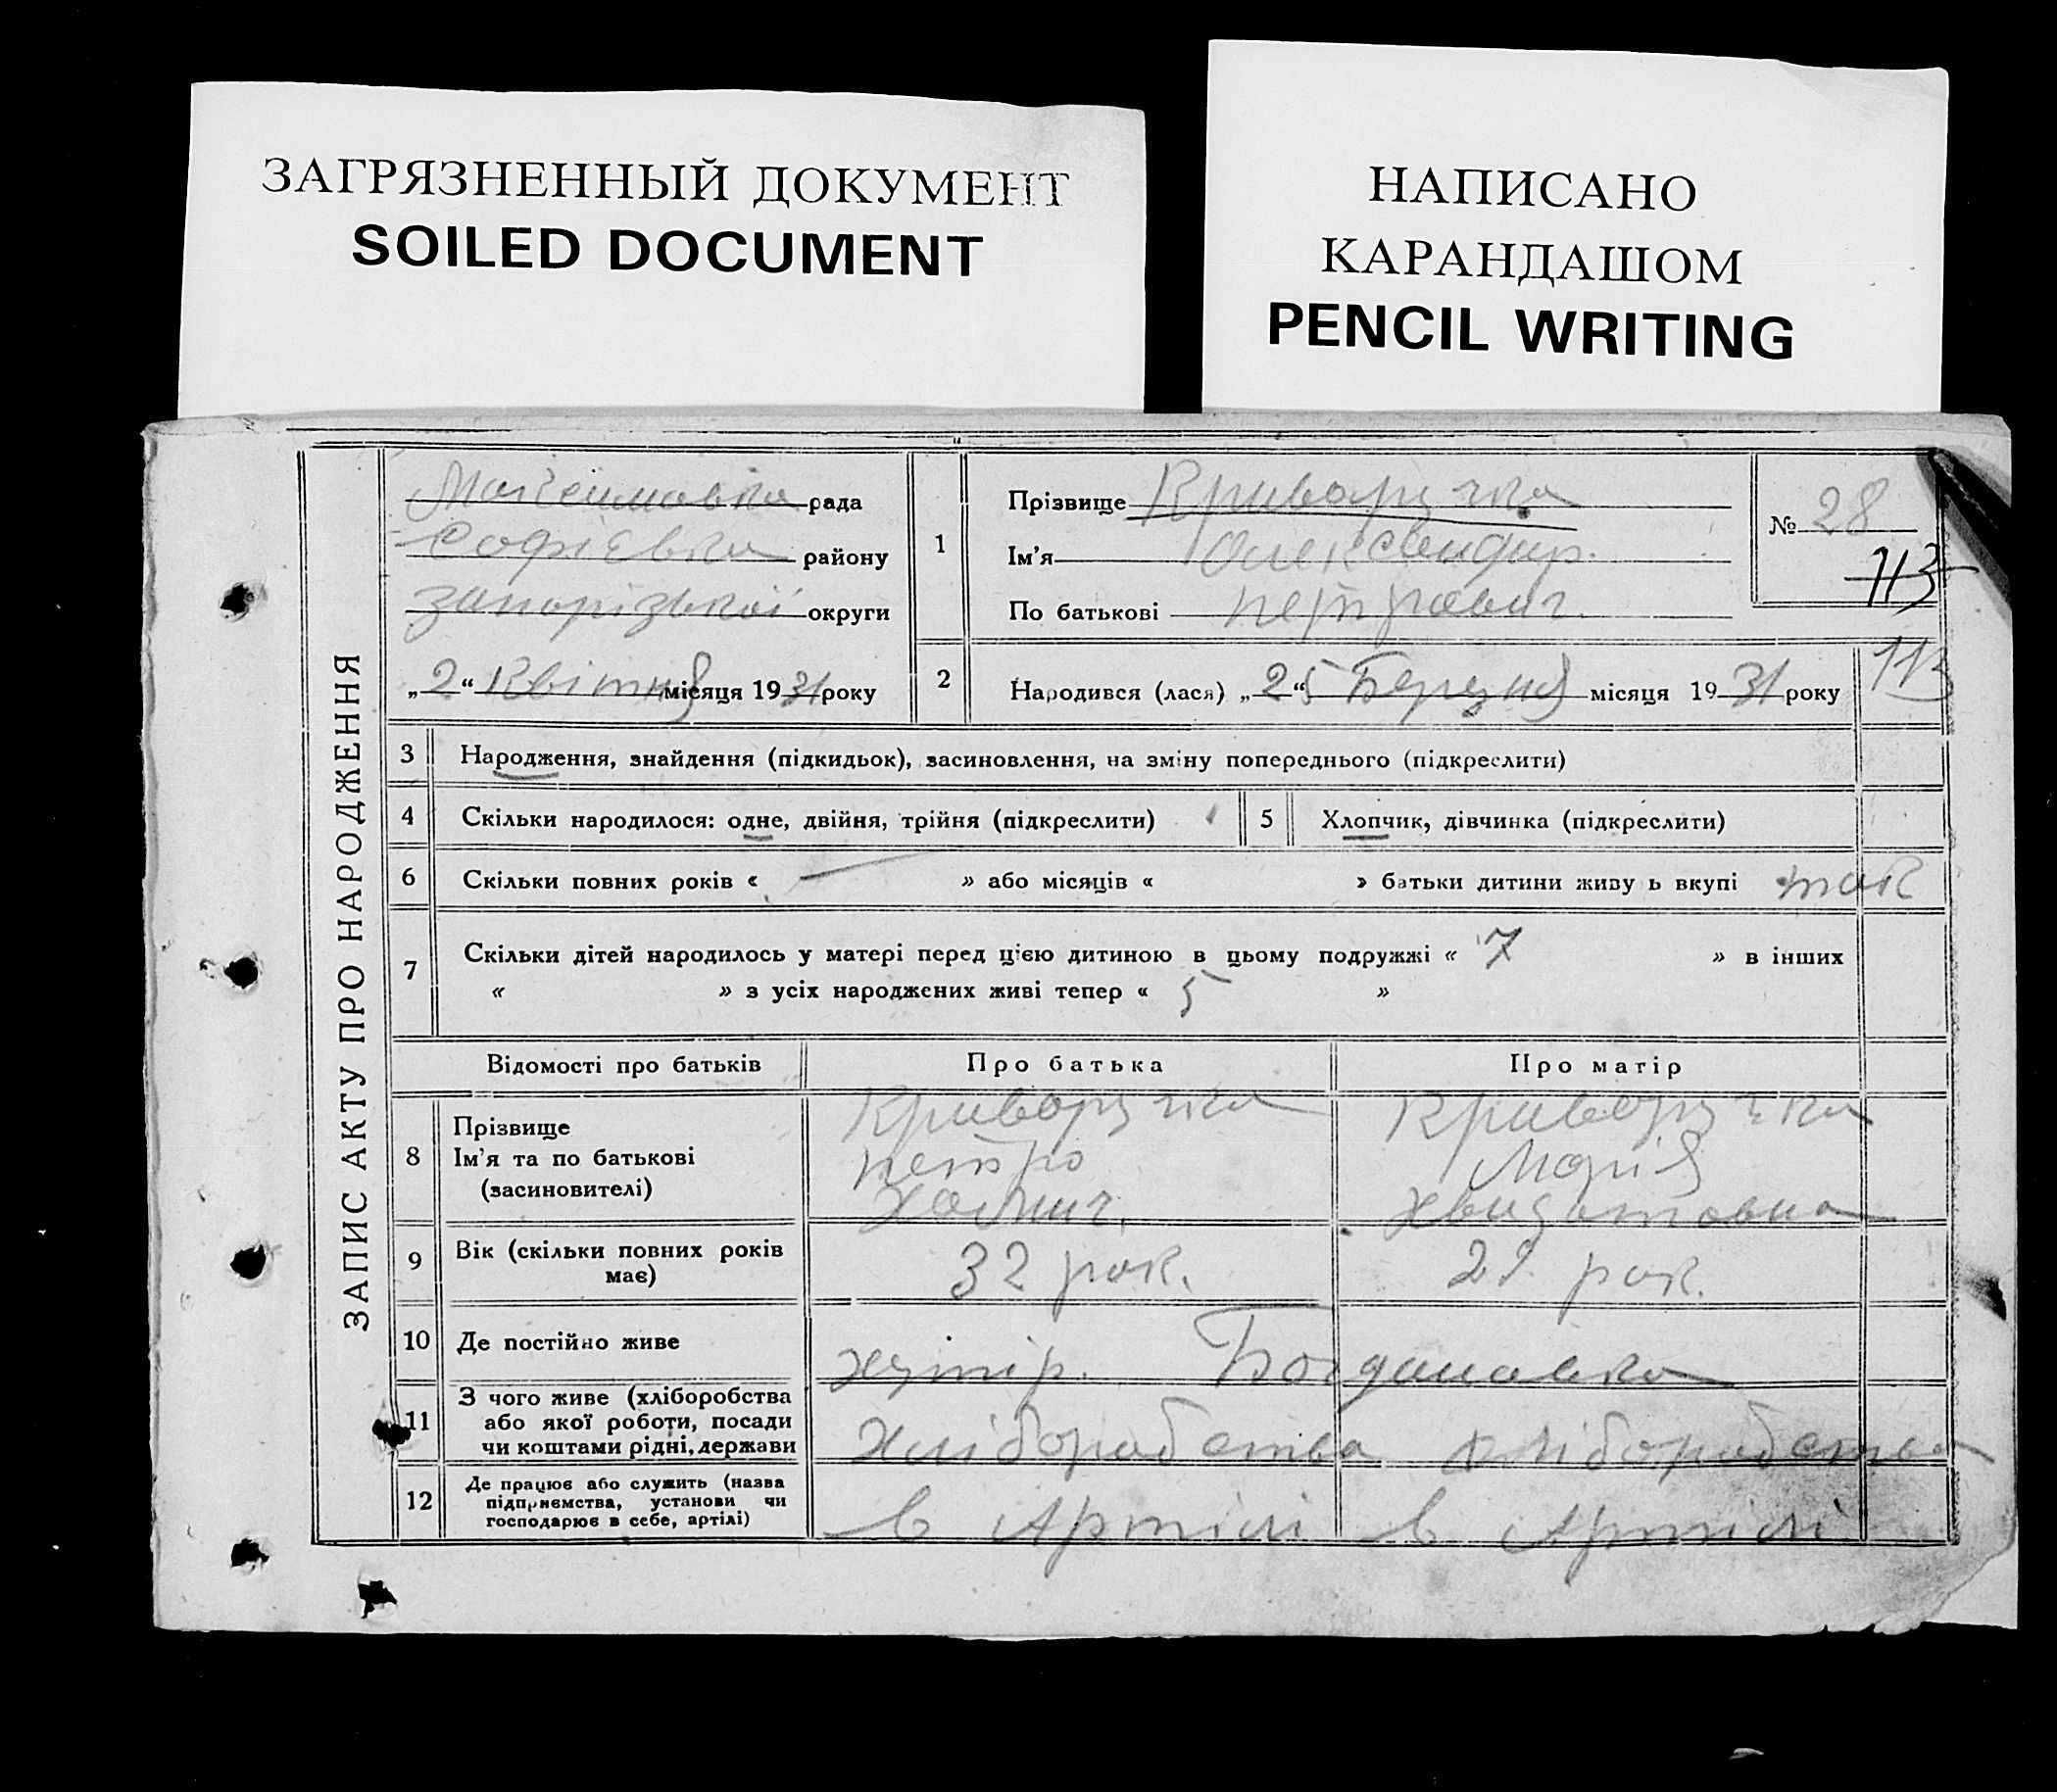 ЗАГРЯЗНЕННЫЙ ДОКУМЕНТ
SOILED DOCUMENT
НАПИСАНО
КАРАНДАШОМ
PENCIL WRITING
ЗАПИС АКТУ ПРО НАРОДЖЕННЯ
рада
Софієвка району
запорізької округи
„2“ Квітня місяця 1931 року
1
Прізвище Криворучка
Ім'я Олександир.
По батькові петрович.
№ 28
113
113
2 Народився (лася) „25“ Березня місяця 1931 року
3 Народження, знайдення (підкидьок), засиновлення, на зміну попереднього (підкреслити)
4 Скільки народилося: одне, двійня, трійня (підкреслити)
5 Хлопчик, дівчинка (підкреслити)
6 Скільки повних років « — » або місяців « » батьки дитини живу ь вкупі так
7 Скільки дітей народилось у матері перед цією дитиною в цьому подружжі « 7 » в інших
« » з усіх народжених живі тепер « 5 »
Відомості про батьків Про батька Про матір
8 Прізвище Криворучка Криворучка
Ім'я та по батькові петро Марія
(засиновителі)
9 Вік (скільки повних років має) 32 рок. 29 рок.
10 Де постійно живе хутір. Богдановка
11 З чого живе (хліборобства
або якої роботи, посади
чи коштами рідні, держави
хліборобства хліборобства
12 Де працює або служить (назва
підприємства, установи чи
господарює в себе, артілі)
в Артілі в Артілі